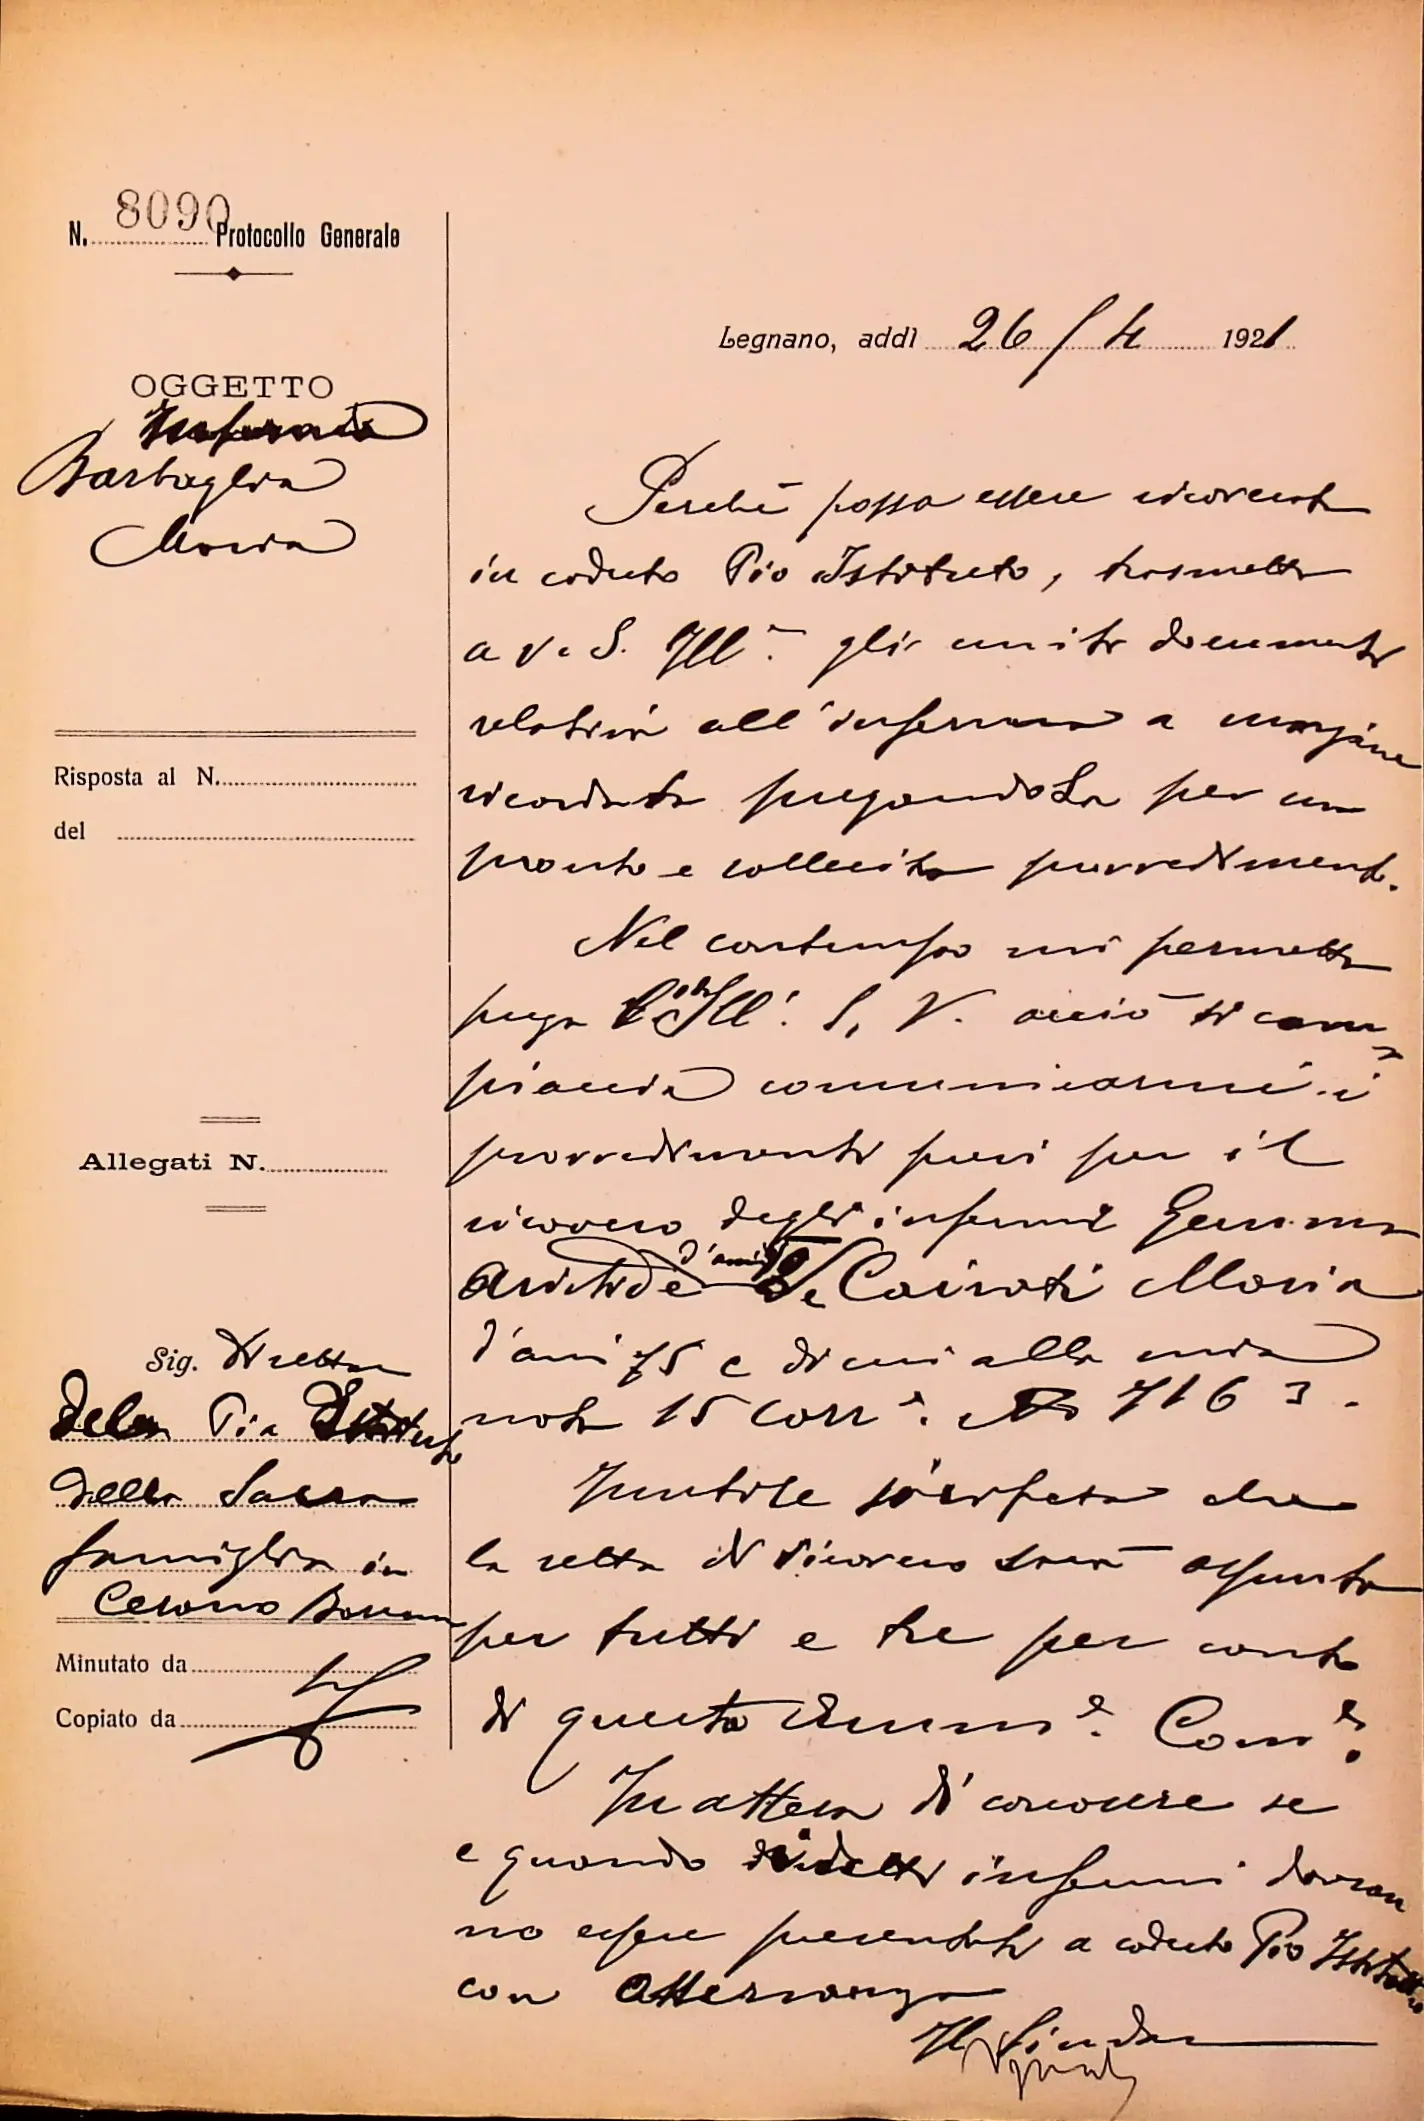 N. 8090 Protocollo Generale
OGGETTO
Barbaglia
Maria
Risposta al N.
del
Allegati N.
Sig. Direttore
Pio Istituto
della Sacra
famiglia in
Cesano Boscone
Minutato da
Copiato da
Legnano, addì 26/4 1921
Perché possa essere ricoverata
in codesto Pio Istituto, trasmetto
a V. S. Ill.ma gli uniti documenti
relativi all'inferma a margine
ricordata pregandoLa per un
pronto e sollecito provvedimento.
Nel contempo mi permetto
prego Ill. S. V. acciò si com
piaccia comunicarmi i
provvedimenti presi per il
ricovero degli infermi
Aristide d'anni e Cairati Maria
d'anni 75 e di cui alla mia
nota 15 corr.e N 7163.
Inutile che
la retta di ricovero sarà assunta
per tutti e tre per conto
di questa Amm.e Com.e
In attesa di conoscere se
e quando i detti infermi dovran
no essere presentati a codesto Pio Istituto
con osservanza
Il Sindaco